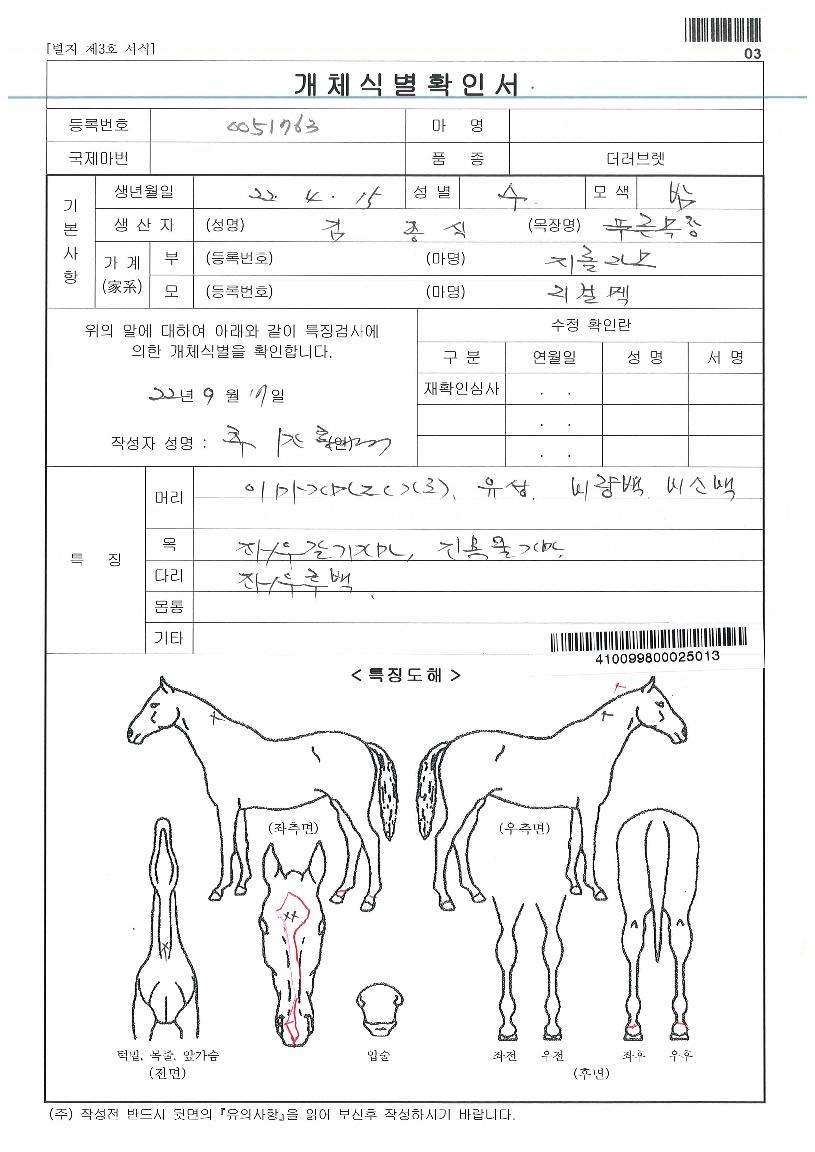 03
[별지 제3호 서식]
개체식별확인서
등록번호 0051763 마 명
국제마번 품 종 더러브렛
기본사항
생년월일 22. 4. 15 성별 수. 모색 밤
생산자 (성명) 종식 (목장명) 푸른목장
가계 (家系) 부 (등록번호) (마명)
모 (등록번호) (마명)
위의 말에 대하여 아래와 같이 특징검사에
의한 개체식별을 확인합니다.
22년 9월 17일
작성자 성명 :
수정 확인란
구분 연월일 성명 서명
재확인심사 . .
. .
. .
특징
머리 유성, 비량백, 비신백
목
다리 좌후우후백
몸통
기타
410099800025013
< 특징도해 >
(좌측면) (우측면)
턱밑, 목줄, 앞가슴
(전면)
입술
좌전 우전 좌후 우후
(후면)
(주) 작성전 반드시 뒷면의 『유의사항』을 읽어 보신후 작성하시기 바랍니다.